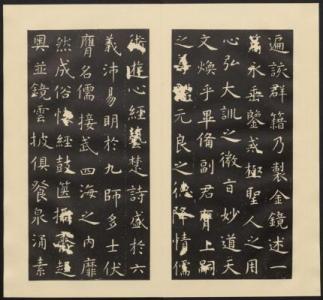 遍該群籍乃製金鏡述一
永垂鑒戒極聖人之用
心弘大訓之微旨妙道天
文煥乎畢備副君膺上嗣
之元良之德降情儒
術遊心經藝楚詩盛於六
義沛易明於九師多士伏
膺名儒接武四海之內靡
然成俗經鼓篋趨
奧並鏡雲披俱餐泉涌素